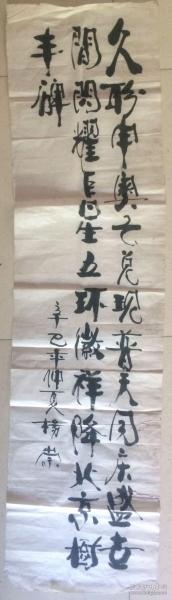 久盼申奥已兑现普天同庆盛世
間閃耀巨星五环徽祥降北京樹
丰碑
辛巳年仲夏